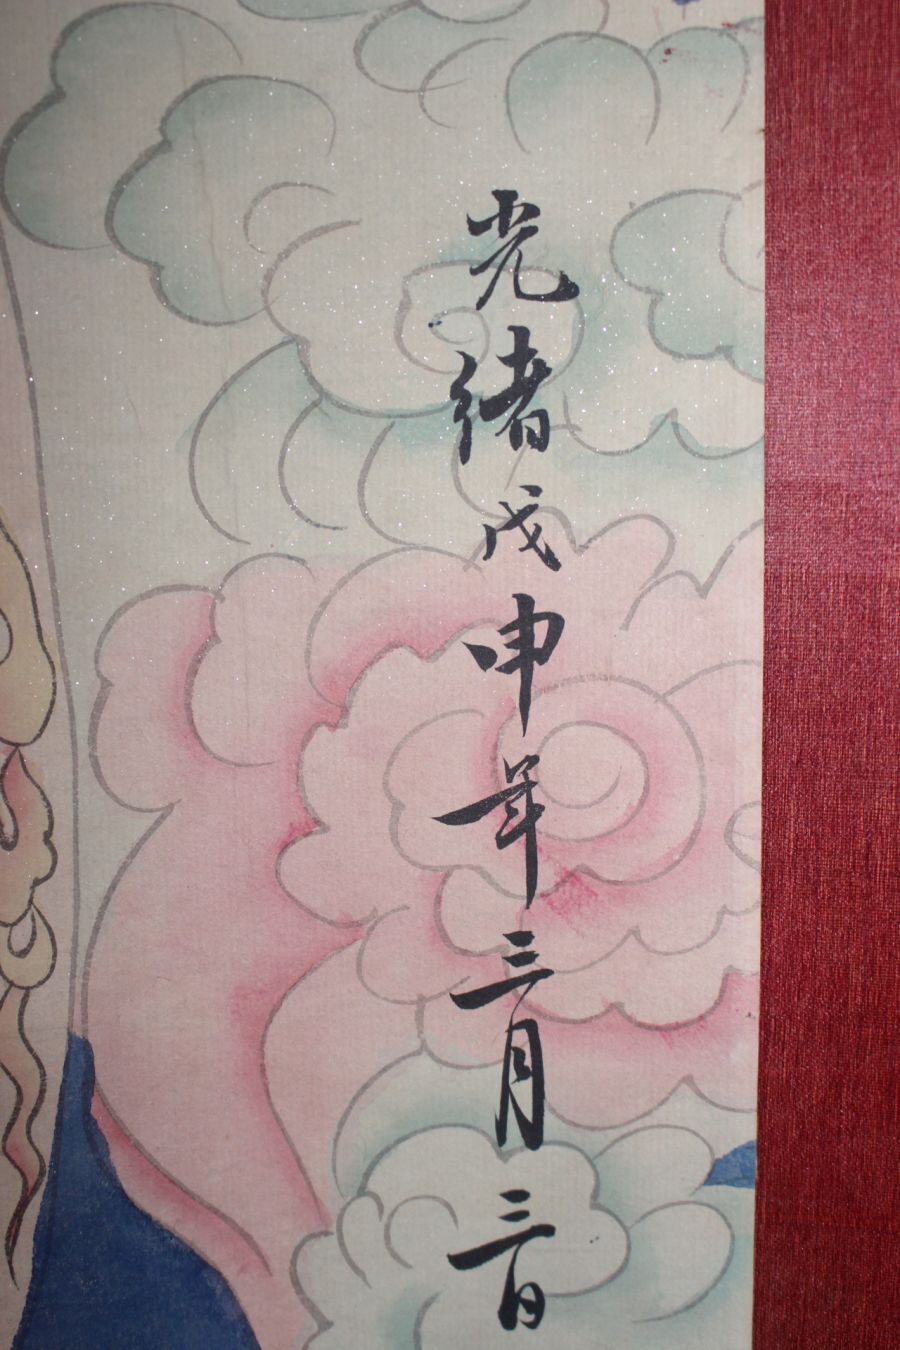 光緒戊申年三月三日